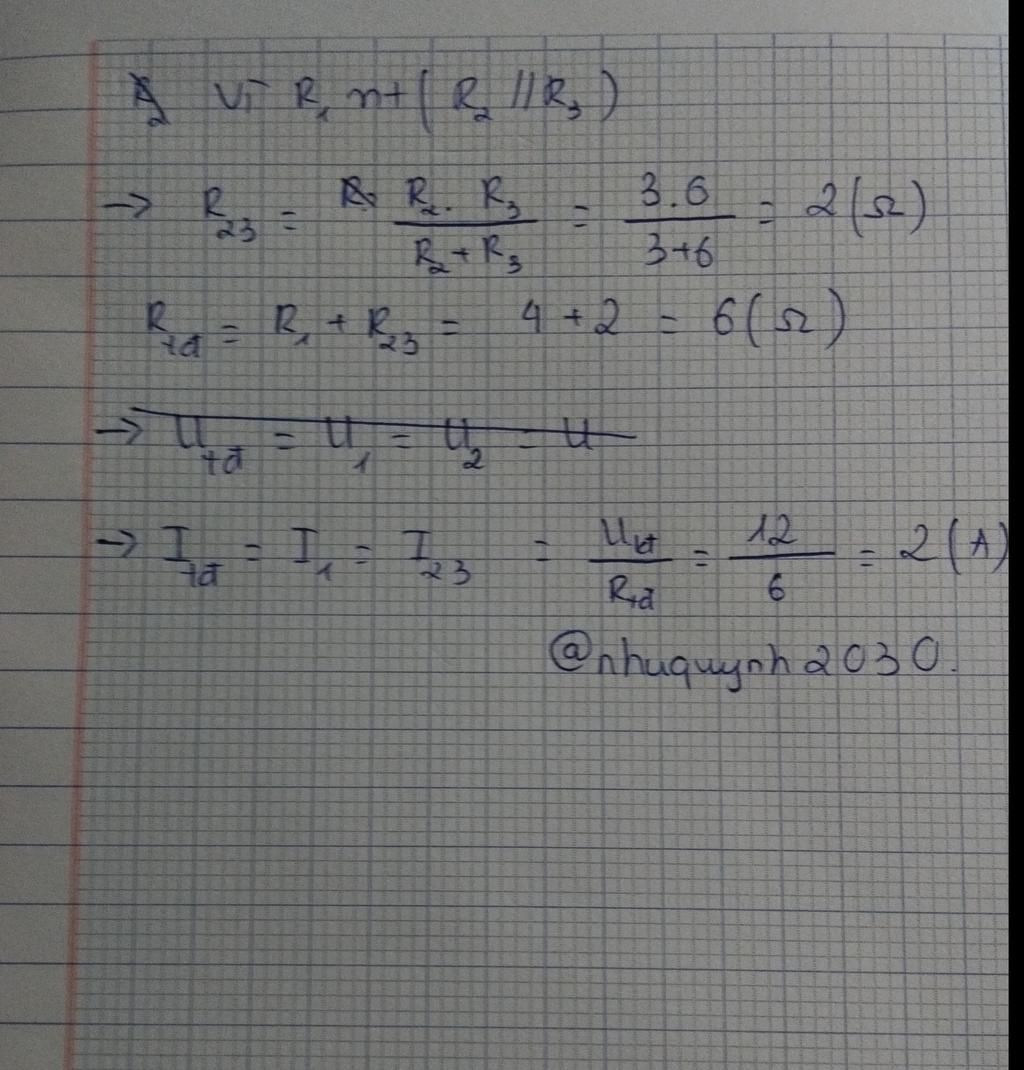 2 Vì R₁ nt ( R₂ // R₃ )
→ R₂₃ = R₂ . R₃ / R₂ + R₃ = 3.6 / 3+6 = 2 (Ω)
R_tđ = R₁ + R₂₃ = 4 + 2 = 6 (Ω)
→ U_tđ = U₁ = U₂ = U
→ I_tđ = I₁ = I₂₃ = U_tđ / R_tđ = 12 / 6 = 2 (A)
@nhuquynh2030.